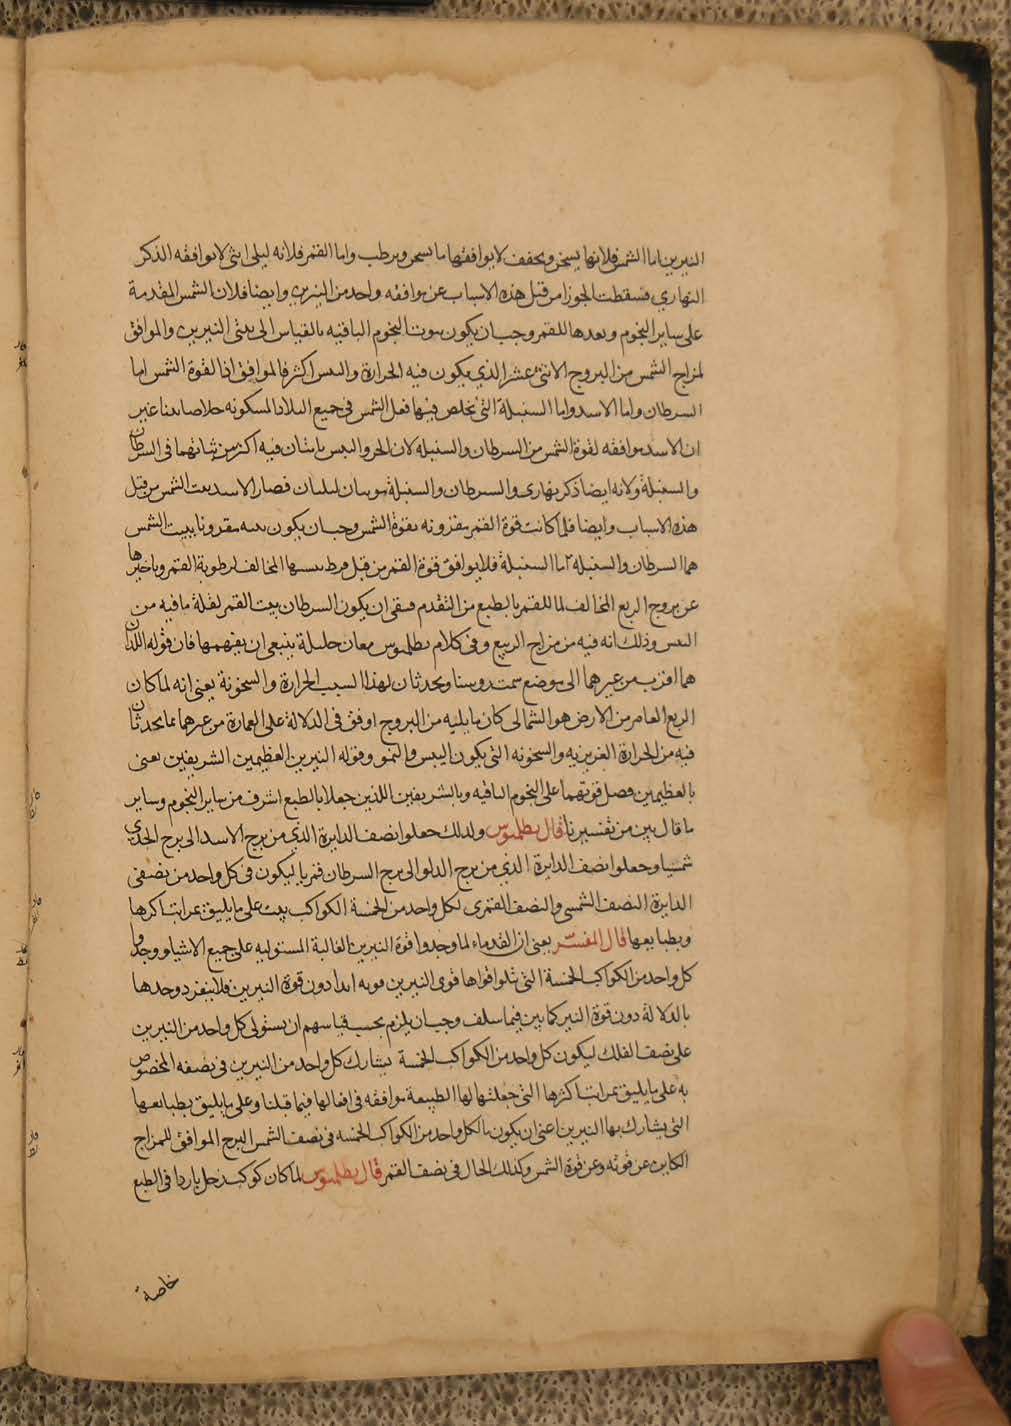 النيرين اما الشمس فلانها يسخن ويجفف لا يوافقها ما يسخن ويرطب واما القمر فلانه ليلى انثى لا يوافقه الذكر
النهاري فسقطت الجوزا من قبل هذه الاسباب عن موافقه واحد من النيرين وايضا فلان الشمس المقدمة
على ساير النجوم وبعدها للقمر وجب ان يكون بيوت النجوم الباقيه بالقياس الى بيتى النيرين والموافق
لمزاج الشمس من البروج الاثنى عشر الذي يكون فيه الحرارة واليبس اكثر فالموافق اذا لقوة الشمس اما
السرطان واما الاسد واما السنبلة التى تخلص فيها فعل الشمس في جميع البلاد المسكونه خلاصا بينا غير
ان الاسد موافقه لقوة الشمس من السرطان والسنبلة لان الحر واليبس ثابتان فيه اكثر من ثباتهما في السرطان
والسنبلة ولانه ايضا ذكر نهاري والسرطان والسنبلة موسان ليليان فصار الاسد بيت الشمس من قبل
هذه الاسباب وايضا فلما كانت قوة القمر مقرونه بقوة الشمس وجب ان يكون بيته مقرونا ببيت الشمس
هما السرطان والسنبلة اما السنبلة فلا يوافق قوة القمر من قبل فرط يبسها المخالف لرطوبة القمر وتاخيرها
عن بروج الربع المخالف لما للقمر بالطبع من التقدم فبقى ان يكون السرطان بيت القمر لقلة ما فيه من
اليبس وذلك انه فيه من مزاج الربيع وفي كلام بطلميوس معان جليلة ينبغي ان يفهمها فان قوله اللذان
هما اقرب من غيرهما الى موضع سمت روسنا ويحدثان لهذا السبب الحرارة والسخونة يعني انه لما كان
الربع العامر من الارض هو الشمالى كان ما يليه من البروج اوفق في الدلالة على العمارة من غيرهما بما يحدثان
فيه من الحرارة الغريزيه والسخونه التى يكون اليبس والنمو وقوله النيرين العظيمين الشريفين يعنى
بالعظيمين فضل قوتهما على النجوم الباقيه وبالشريفين اللذين جعلا بالطبع اشرف من ساير النجوم وساير
ما قال بين من تفسيرنا قال بطلميوس ولذلك جعلوا نصف الدايرة الذي من برج الاسد الى برج الجدي
شمسيا وجعلوا نصف الدايرة الذي من برج الدلو الى برج السرطان قمريا ليكون في كل واحد من نصفى
الدايرة النصف الشمسى والنصف القمرى لكل واحد من الخمسة الكواكب بيت على ما يليق بمراتب اكرها
وبطبايعها قال المفسر يعنى ان القدماء لما وجدوا قوة النيرين الغالبة المستوليه على جميع الاشيا ووجدوا
كل واحد من الكواكب الخمسة التى تتلو اقواها قوى النيرين قوته ابدا دون قوة النيرين فلا ينفرد وحدها
بالدلالة دون قوة النير كما بين فيما سلف وجب ان يلزم بحسب قياسهم ان يستولى كل واحد من النيرين
على نصف الفلك ليكون كل واحد من الكواكب الخمسة يشارك كل واحد من النيرين في نصفه المخصوص
به على ما يليق بمراتب اكرها التى جعلتها لها الطبيعة موافقه في افعالها فيما قبلنا وعلى ما يليق بطبايعها
التى يشارك بها النيرين اعنى ان يكون لكل واحد من الكواكب الخمسه في نصف الشمس البرج الموافق للمزاج
الكاين عن قوته وعن قوة الشمس وكذلك الحال في نصف القمر قال بطلميوس لما كان كوكب زحل باردا في الطبع
خاصة